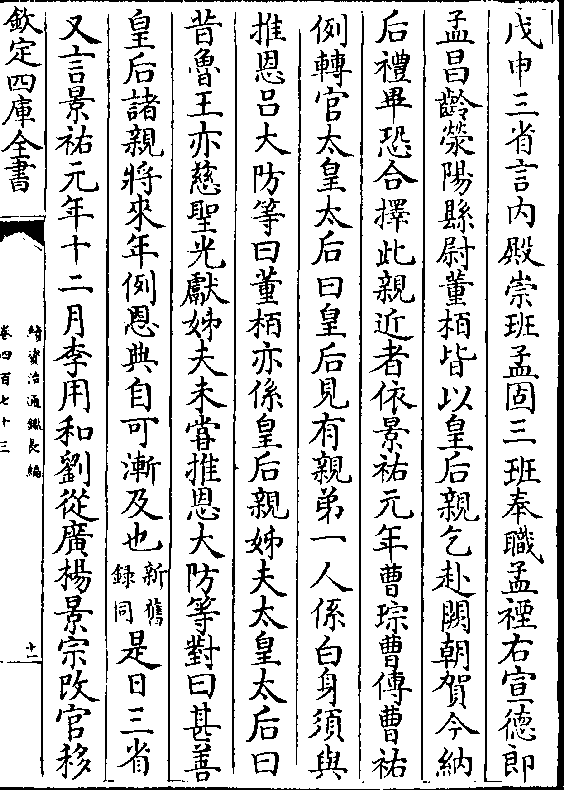 戊申三省言内殿崇班孟固三班奉職孟禋右宣德郎
孟昌齡滎陽縣尉董栢皆以皇后親乞赴闕朝賀今納
后禮畢恐合擇此親近者依景祐元年曹琮曹傳曹祐
例轉官太皇太后曰皇后見有親弟一人係白身須與
推恩吕大防等曰董栢亦係皇后親姊夫太皇太后曰
昔魯王亦慈聖光獻姊夫未嘗推恩大防等對曰甚善
皇后諸親將來年例恩典自可漸及也新舊録同是日三省
又言景祐元年十二月李用和劉從廣楊景宗改官移
欽定四庫全書
續資治通鑑長編
卷四百七十三
十一